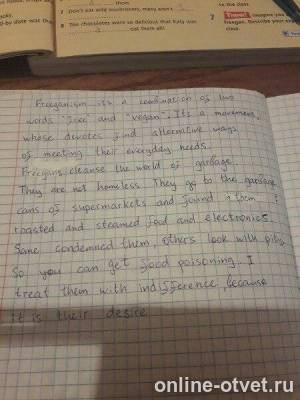 7 Don't eat wild mushrooms, many aren't
them.
8 The chocolates were so delicious that Katy was
eat them all!
to the class.
7
Freeganism its a combination of two
words "free" and "vegan". Its a movement,
whose devotes find alternative ways
of meeting their everyday needs.
Freegans cleanse the world of garbage.
They are not homeless. They go to the garbage
cans of supermarkets and found in them
roasted and steamed food and electronics.
Some condemned them, others look with pity.
So you can get food poisoning. I
treat them with indifference, because
it is their desire
online-otvet.ru